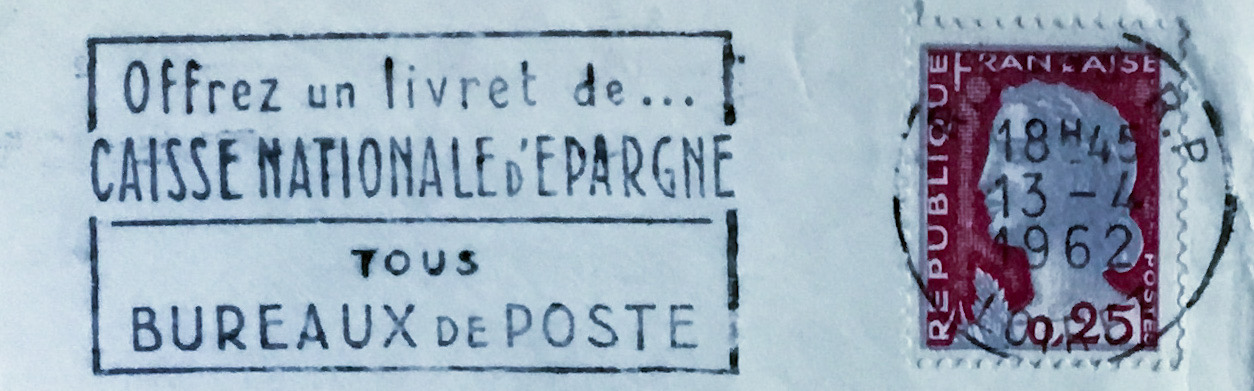 Offrez un livret de...
CAISSE NATIONALE D'EPARGNE
TOUS
BUREAUX DE POSTE
REPUBLIQUE
FRANÇAISE
R.P
18H45
13-4
1962
POSTES
0,25